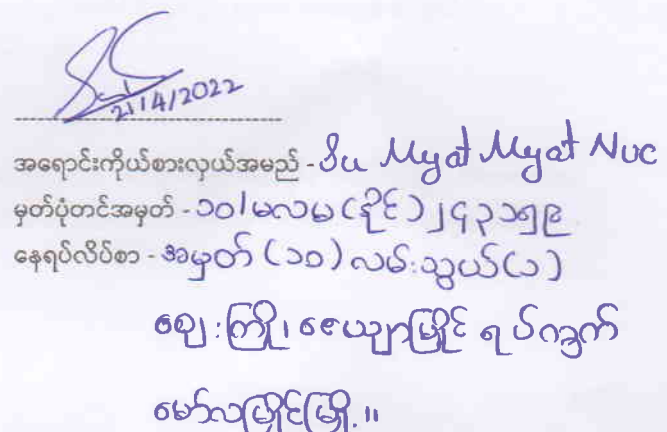 2/4/2022
အရောင်းကိုယ်စားလှယ်အမည် - Su Myat Myat Nuc
မှတ်ပုံတင်အမှတ် - ၁၀/မလမ(နိုင်)၂၄၃၁၅၉
နေရပ်လိပ်စာ - အမှတ် (၁၁) လမ်းသွယ်(၁)
ဈေးကြို၊ ဇေယျာမြိုင် ရပ်ကွက်
မော်လမြိုင်မြို့။